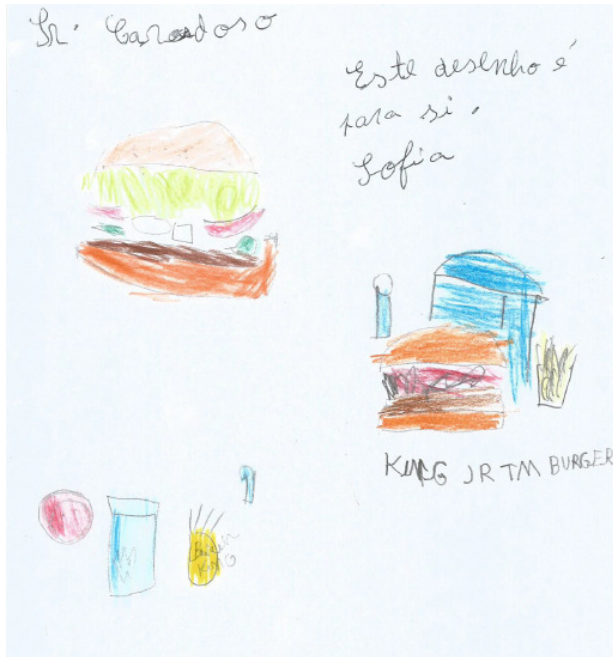 Sr. Carodoso
Este desenho é
para si,
Sofia
KING JR TM BURGER
KING